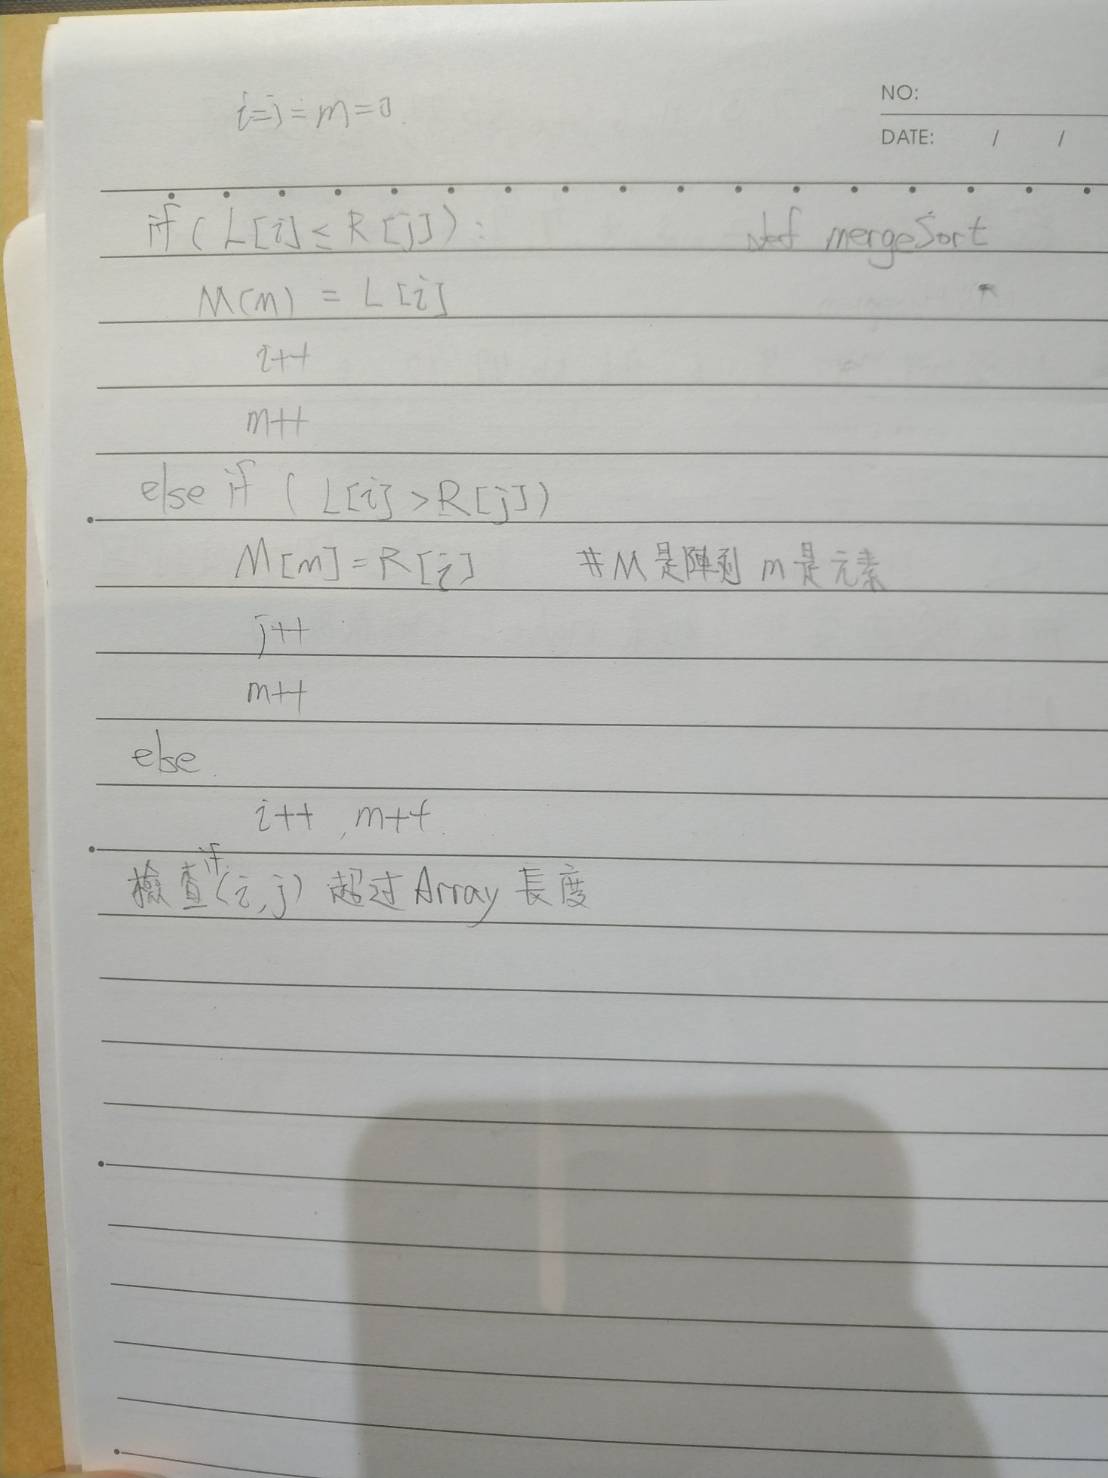 i=j=m=0.
NO:
DATE: / /
if ( L[i] ≤ R[j] ) : def mergeSort
M(m) = L[i]
i++
m++
else if ( L[i] > R[j] )
M[m] = R[i] #M是陣列 m是元素
j++
m++
else
i++ , m++
檢查if(i,j) 超过Array長度